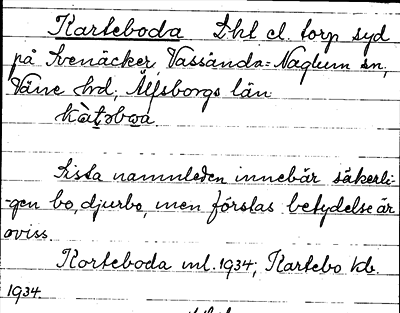 Karteboda Lht el. torp syd
på Svenäcker, Vassända-Naglum sn,
Väne hd, Älfsborgs län.
Sista namnleden innebär säkerli-
gen bo, djurbo, men förstas betydelse är
oviss.
Korteboda ml. 1934; Kartebo kb.
1934.